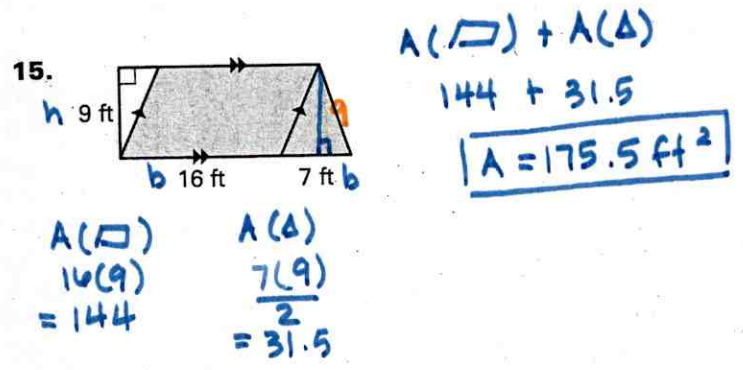 15.
h 9 ft
9
b 16 ft
7 ft b
A(▱) + A(Δ)
144 + 31.5
A = 175.5 ft²
A(▱)
16(9)
= 144
A(Δ)
7(9)
2
= 31.5